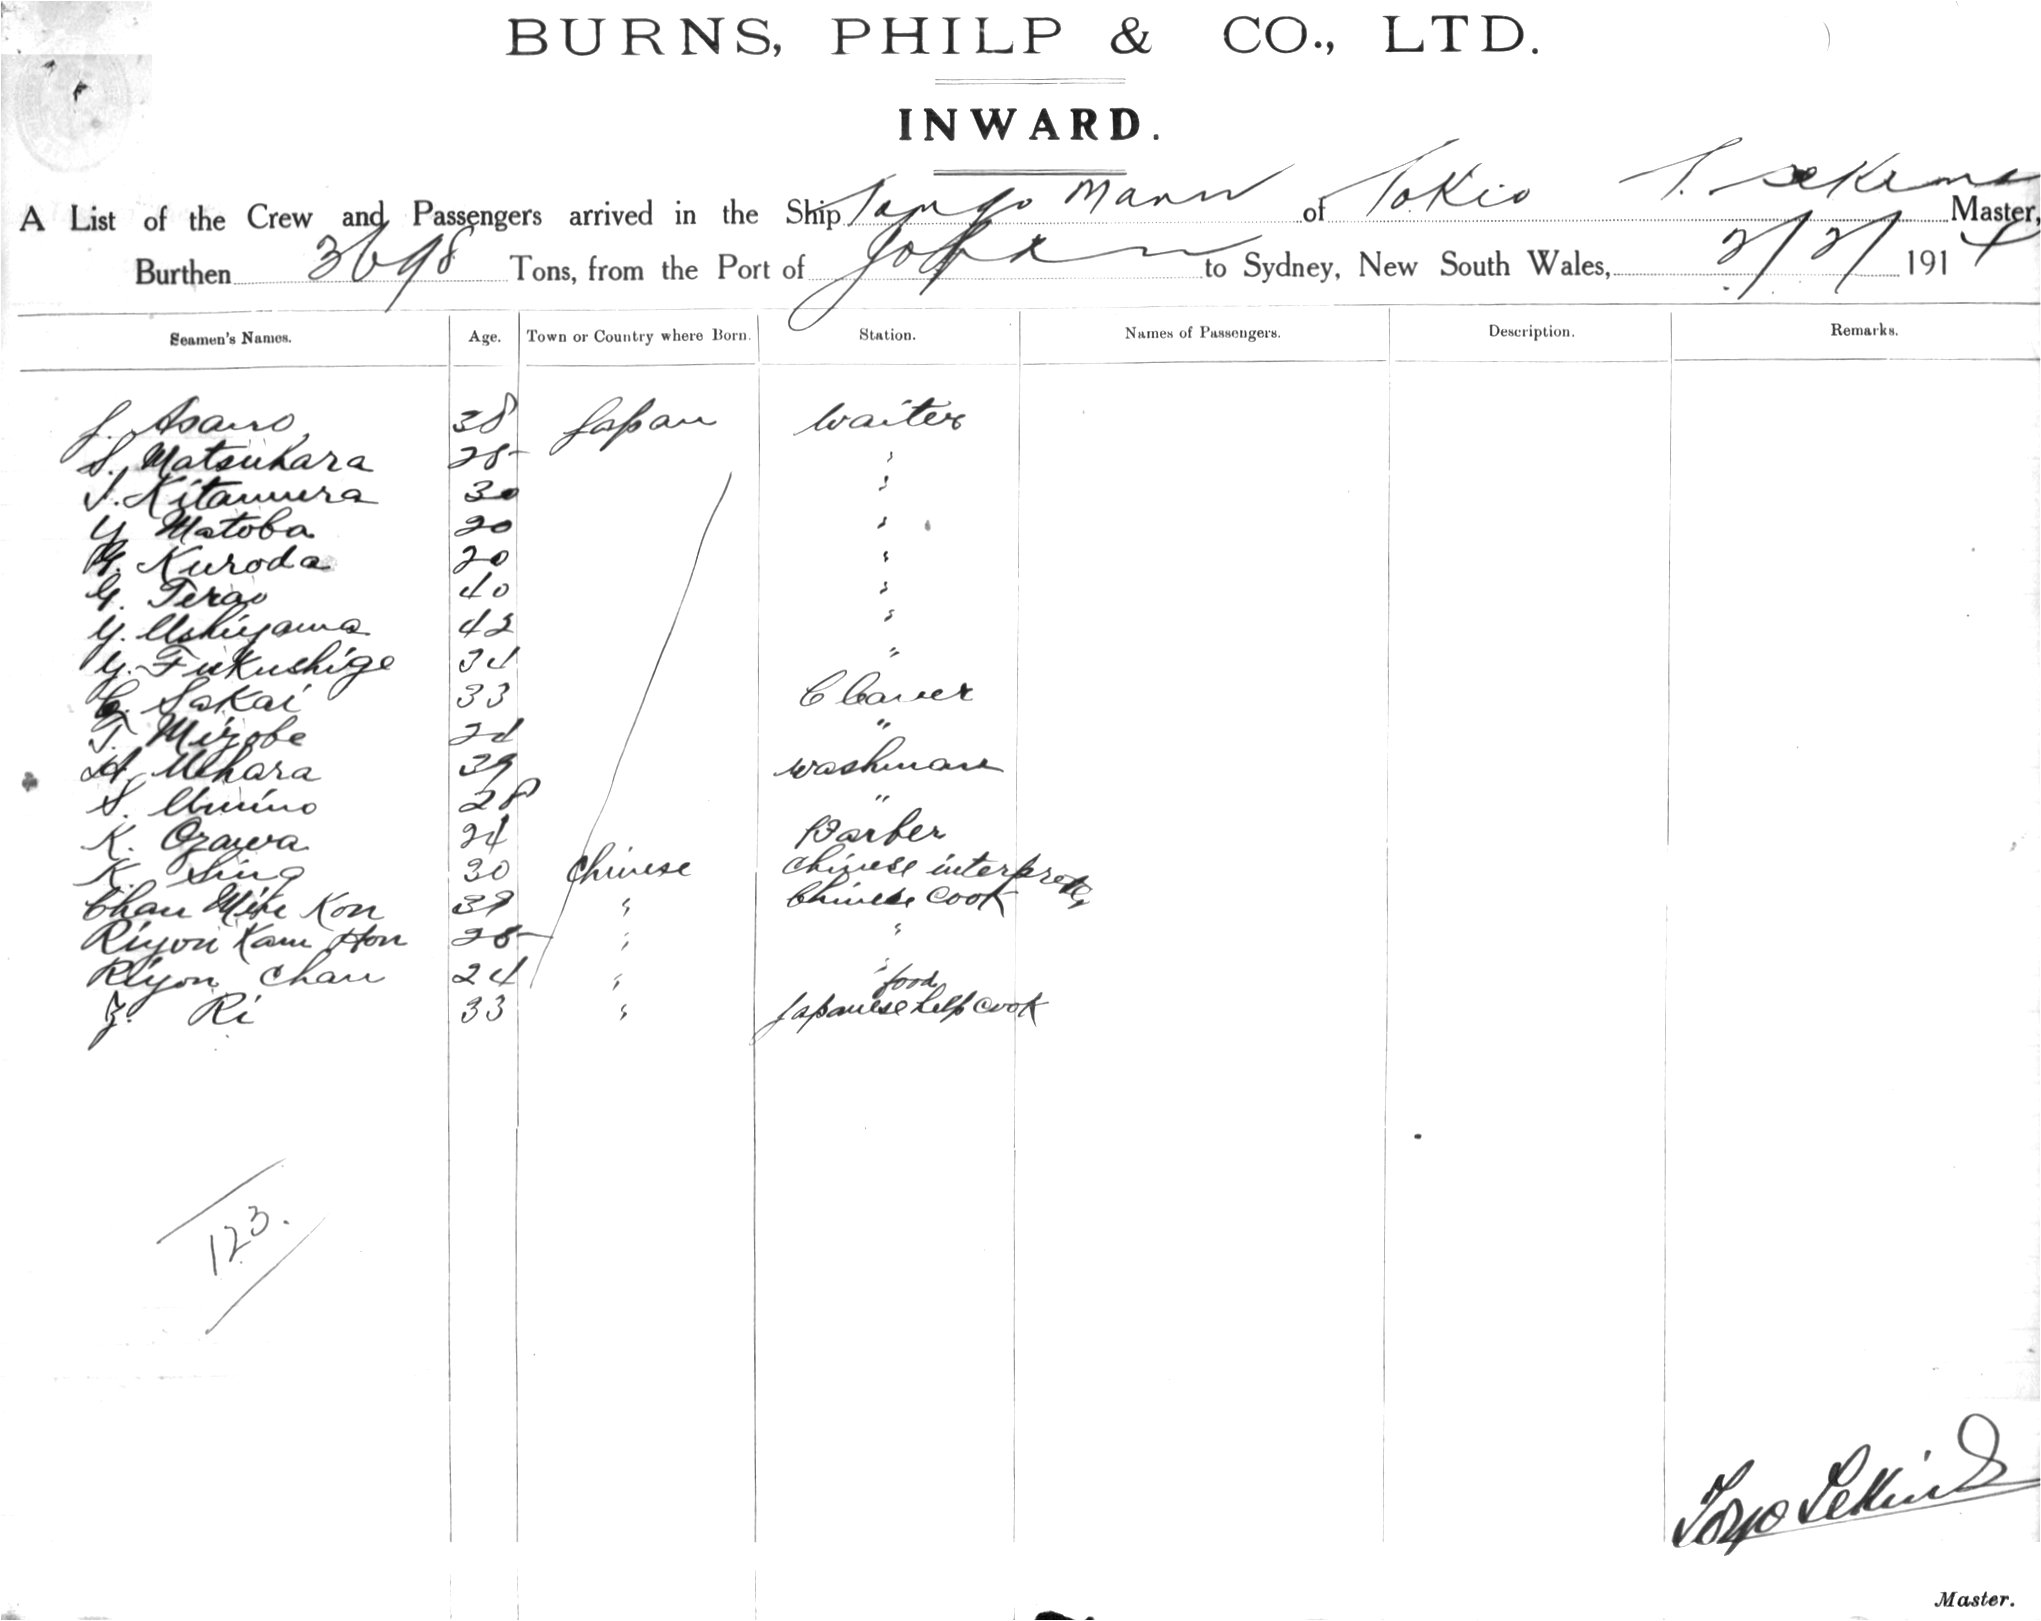 BURNS, PHILP & CO., LTD.
INWARD.
A List of the Crew and Passengers arrived in the Ship Tango Maru of Tokio T. Sekine Master,
Burthen 3698 Tons, from the Port of Japan to Sydney, New South Wales, 2/2/ 1914
Seamen's Names. Age. Town or Country where Born. Station. Names of Passengers. Description. Remarks.
J. Asano 38 Japan Waiter
S. Matsuhara 25 "
J. Kitamura 30 "
Y. Matoba 20 "
Kuroda 20 "
G. Terao 40 "
Y. Ushiyama 42 "
Y. Fukushige 34 "
Sakai 33 Cleaner
T. Mizobe 24 "
Uehara 39 Washman
S. Umino 28 "
K. Ozawa 24 Barber
K. Sing 30 Chinese Chinese interpreter
Chan Min Kon 39 " Chinese Cook
Riyon Kam Hon 28 " "
Riyon Chan 24 " "
Z. Ri 33 " Japanese food help cook
123.
Toyo Sekine
Master.